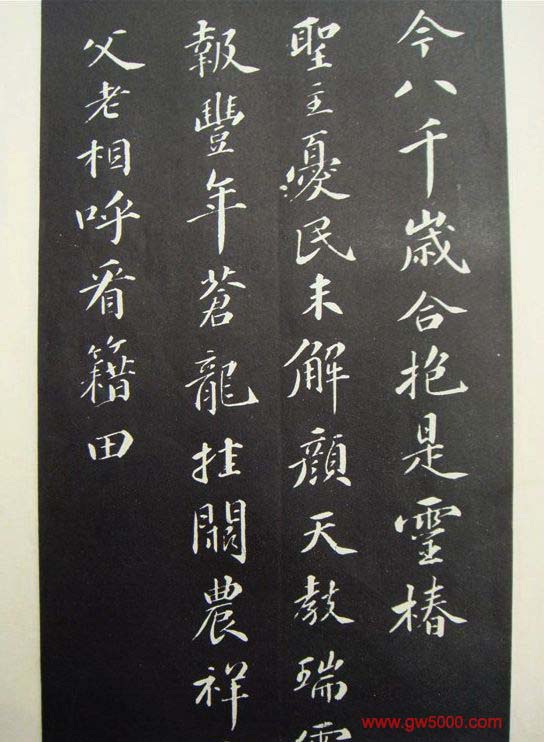 今八千歲合抱是靈椿
聖主憂民未解顏天教瑞
報豐年蒼龍挂闕農祥
父老相呼看籍田
www.gw5000.com